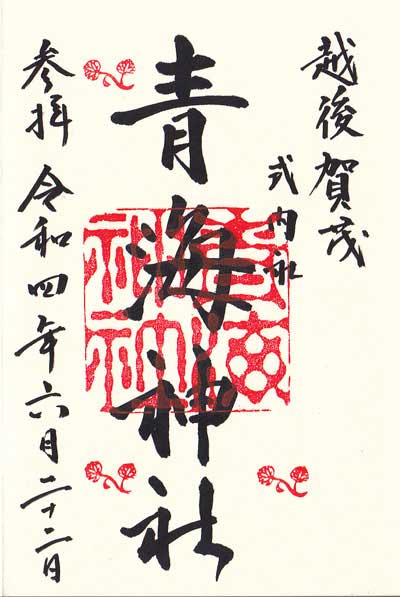 越後賀茂
式内社
青海神社
青海神社
参拝 令和四年六月二十二日